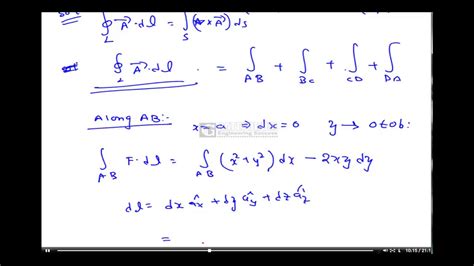 Sol: ∮_L A⃗·dl = ∫_S (∇×A⃗) ds
∮_L A⃗·dl = ∫_AB + ∫_BC + ∫_CD + ∫_DA
Along AB:- x=a ⇒ dx=0 y → 0 to b:
∫_AB F·dl = ∫_AB (x²+y²) dx − 2xy dy
dl = dx âx + dy ây + dz âz
=
10:15 / 21:1